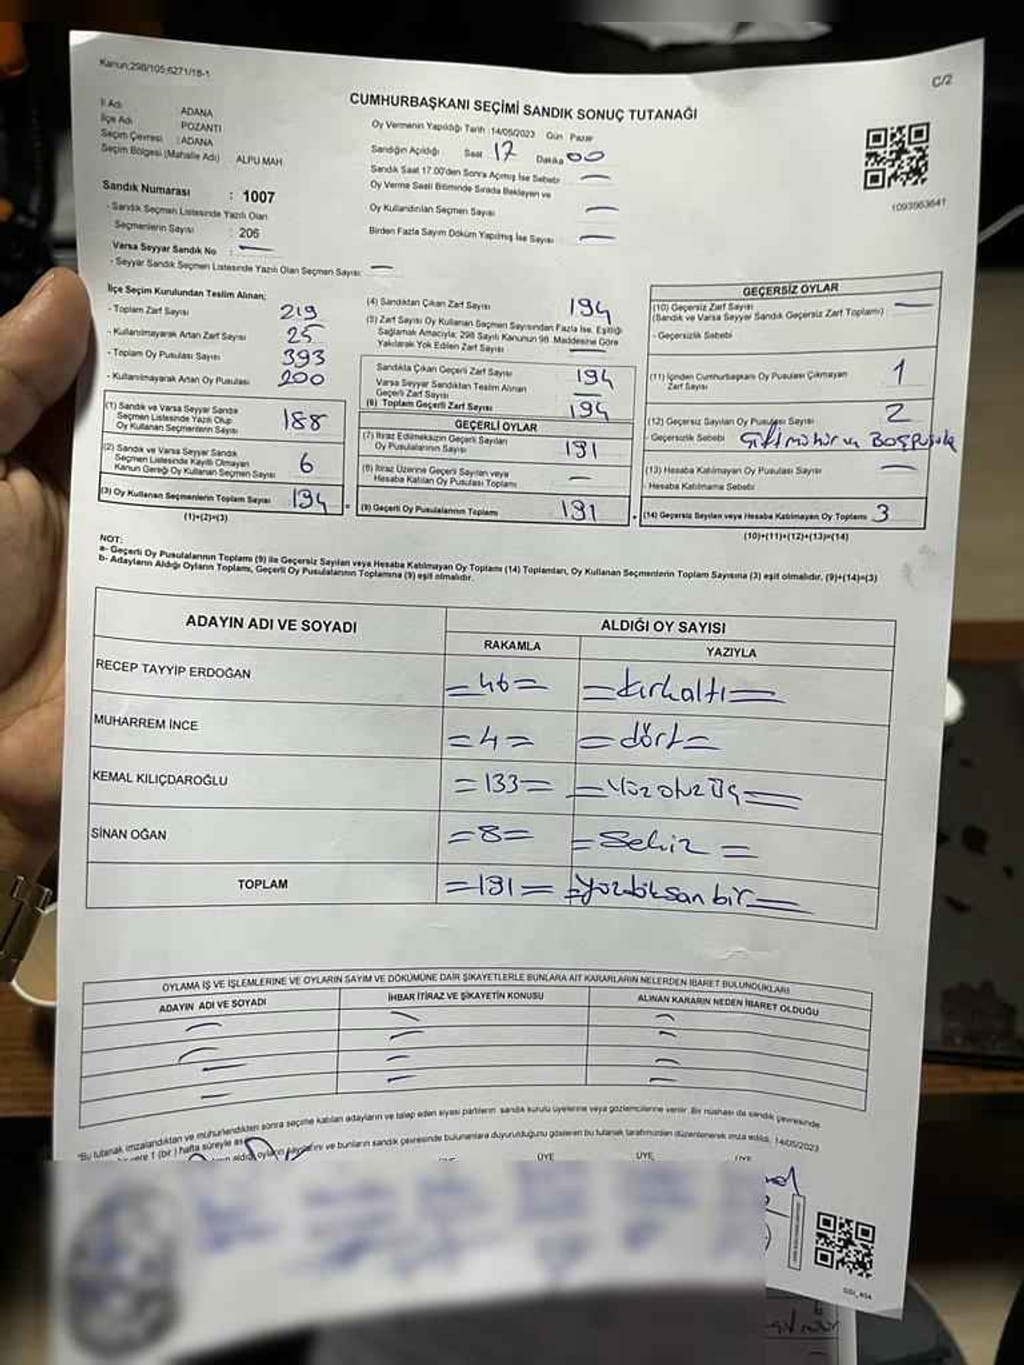 Kanun;298/105;6271/18-1
C/2
CUMHURBAŞKANI SEÇİMİ SANDIK SONUÇ TUTANAĞI
İl Adı ADANA
İlçe Adı POZANTI
Seçim Çevresi : ADANA
Seçim Bölgesi (Mahalle Adı) ALPU MAH
Sandık Numarası : 1007
- Sandık Seçmen Listesinde Yazılı Olan
Seçmenlerin Sayısı : 206
Varsa Seyyar Sandık No : —
- Seyyar Sandık Seçmen Listesinde Yazılı Olan Seçmen Sayısı: —
Oy Vermenin Yapıldığı Tarih :14/05/2023 Gün Pazar
Sandığın Açıldığı Saat 17 Dakika 00
Sandık Saat 17.00'den Sonra Açılmış İse Sebebi —
Oy Verme Saati Bitiminde Sırada Bekleyen ve
Oy Kullandırılan Seçmen Sayısı —
Birden Fazla Sayım Döküm Yapılmış İse Sayısı —
1093963641
İlçe Seçim Kurulundan Teslim Alınan;
- Toplam Zarf Sayısı 219
- Kullanılmayarak Artan Zarf Sayısı 25
- Toplam Oy Pusulası Sayısı 393
- Kullanılmayarak Artan Oy Pusulası 200
(1) Sandık ve Varsa Seyyar Sandık
Seçmen Listesinde Yazılı Olup
Oy Kullanan Seçmenlerin Sayısı 188
(2) Sandık ve Varsa Seyyar Sandık
Seçmen Listesinde Kayıtlı Olmayan
Kanun Gereği Oy Kullanan Seçmen Sayısı 6
(3) Oy Kullanan Seçmenlerin Toplam Sayısı 194
(1)+(2)=(3)
(4) Sandıktan Çıkan Zarf Sayısı 194
(5) Zarf Sayısı Oy Kullanan Seçmen Sayısından Fazla İse, Eşitliği
Sağlamak Amacıyla; 298 Sayılı Kanunun 98. Maddesine Göre
Yakılarak Yok Edilen Zarf Sayısı —
Sandıkta Çıkan Geçerli Zarf Sayısı 194
Varsa Seyyar Sandıktan Teslim Alınan
Geçerli Zarf Sayısı —
(6) Toplam Geçerli Zarf Sayısı 194
GEÇERLİ OYLAR
(7) İtiraz Edilmeksizin Geçerli Sayılan
Oy Pusulalarının Sayısı 191
(8) İtiraz Üzerine Geçerli Sayılan veya
Hesaba Katılan Oy Pusulası Toplamı —
(9) Geçerli Oy Pusulalarının Toplamı 191
GEÇERSİZ OYLAR
(10) Geçersiz Zarf Sayısı —
(Sandık ve Varsa Seyyar Sandık Geçersiz Zarf Toplamı)
- Geçersizlik Sebebi
(11) İçinden Cumhurbaşkanı Oy Pusulası Çıkmayan
Zarf Sayısı 1
(12) Geçersiz Sayılan Oy Pusulası Sayısı 2
- Geçersizlik Sebebi Çift mühür ve BOŞ pusula
(13) Hesaba Katılmayan Oy Pusulası Sayısı —
- Hesaba Katılmama Sebebi
(14) Geçersiz Sayılan veya Hesaba Katılmayan Oy Toplamı 3
(10)+(11)+(12)+(13)=(14)
NOT:
a- Geçerli Oy Pusulalarının Toplamı (9) ile Geçersiz Sayılan veya Hesaba Katılmayan Oy Toplamı (14) Toplamları, Oy Kullanan Seçmenlerin Toplam Sayısına (3) eşit olmalıdır. (9)+(14)=(3)
b- Adayların Aldığı Oyların Toplamı, Geçerli Oy Pusulalarının Toplamına (9) eşit olmalıdır.
ADAYIN ADI VE SOYADI ALDIĞI OY SAYISI
RAKAMLA YAZIYLA
RECEP TAYYİP ERDOĞAN =46= =kırkaltı=
MUHARREM İNCE =4= =dört=
KEMAL KILIÇDAROĞLU =133= =Yüz otuz Üç=
SİNAN OĞAN =8= =Sekiz=
TOPLAM =191= =yüzdoksan bir=
OYLAMA İŞ VE İŞLEMLERİNE VE OYLARIN SAYIM VE DÖKÜMÜNE DAİR ŞİKAYETLERLE BUNLARA AİT KARARLARIN NELERDEN İBARET BULUNDUKLARI
ADAYIN ADI VE SOYADI İHBAR İTİRAZ VE ŞİKAYETİN KONUSU ALINAN KARARIN NEDEN İBARET OLDUĞU
"Bu tutanak imzalandıktan ve mühürlendikten sonra seçime katılan adayların ve talep eden siyasi partilerin sandık kurulu üyelerine veya gözlemcilerine verilir. Bir nüshası da sandık çevresinde
1 (bir) hafta süreyle bunların sandık çevresinde bulunanlara duyurulduğunu gösteren bu tutanak tarafımızdan düzenlenerek imza edildi. 14/05/2023
ÜYE ÜYE ÜYE ÜYE